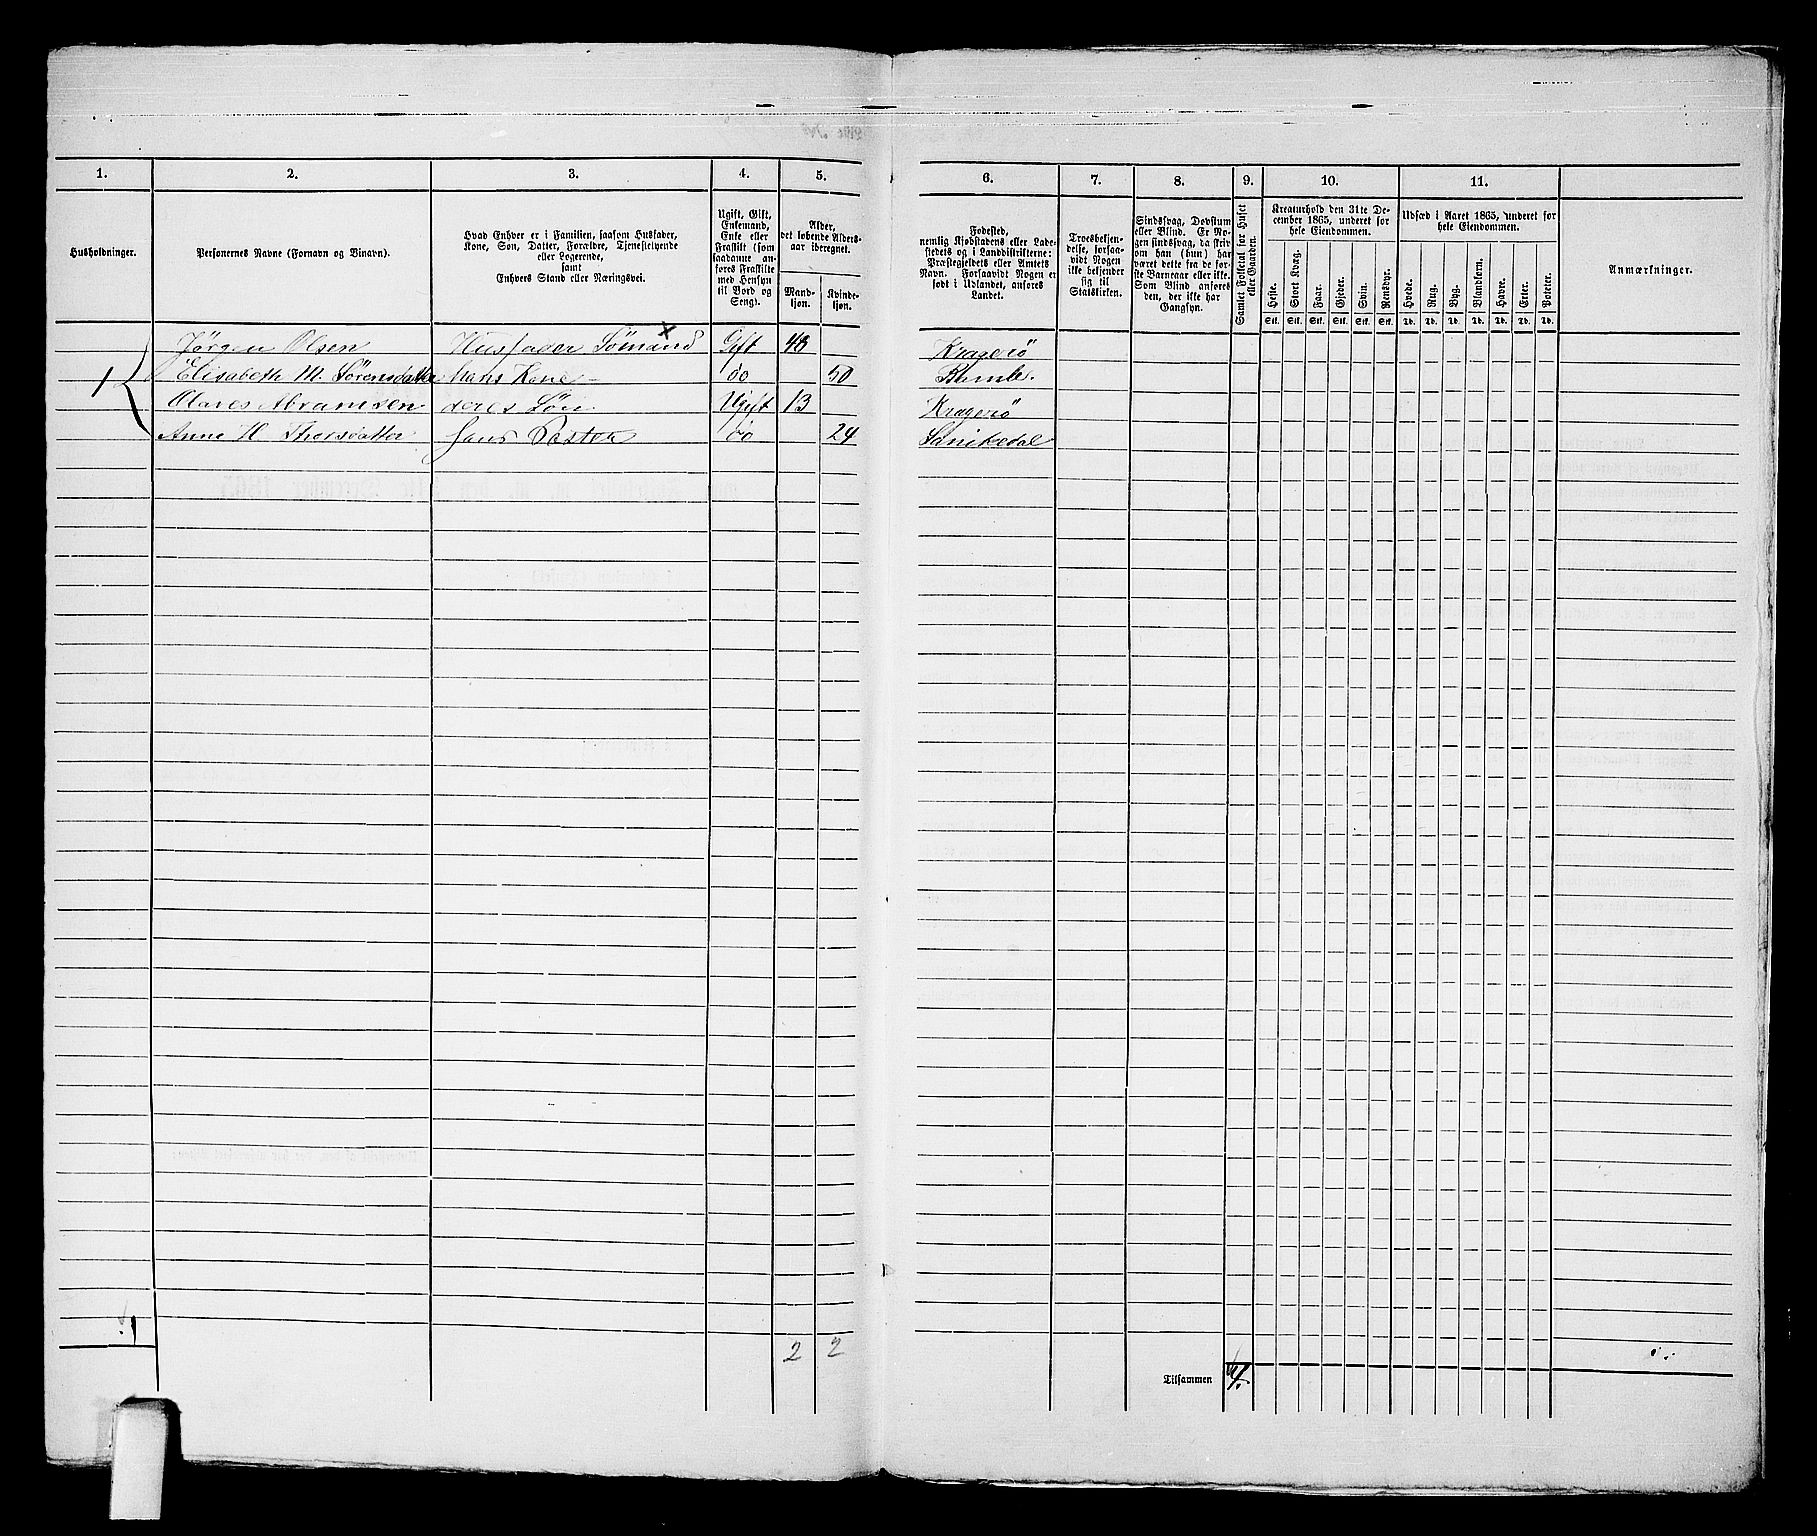 1. 2. 3. 4. 5. 6. 7. 8. 9. 10. 11.
Husholdninger.
Personernes Navne (Fornavn og Binavn).
Hvad Enhver er i Familien, saasom Husfader,
Kone, Søn, Datter, Forældre, Tjenestetyende
eller Logerende,
samt
Enhvers Stand eller Næringsvei.
Ugift, Gift,
Enkemand,
Enke eller
Fraskilt (som
saadanne an-
føres Fraskilte
med Hensyn
til Bord og
Seng).
Alder,
det løbende Alders-
aar iberegnet.
Mand-
kjøn.
Kvinde-
kjøn.
Fødested,
nemlig Kjøbstadens eller Lade-
stedets og i Landdistrikterne:
Præstegjeldets eller Amtets
Navn. Forsaavidt Nogen er
født i Udlandet, anføres
Landet.
Troesbekjen-
delse, forsaa-
vidt Nogen
ikke bekjender
sig til
Statskirken.
Sindssvag, Døvstum
eller Blind. Er No-
gen sindssvag, da skriv
om han (hun) har
været dette fra de før-
ste Barneaar eller ikke.
Som Blind anføres
den, der ikke har
Gangsyn.
Samlet Folketal for Huset
eller Gaarden.
Kreaturhold den 31te De-
cember 1865, underet for
hele Eiendommen.
Heste. Stort Kvæg. Faar. Gjeder. Svin. Rensdyr.
Stk. Stk. Stk. Stk. Stk. Stk.
Udsæd i Aaret 1865, underet for
hele Eiendommen.
Hvede. Rug. Byg. Blandkorn. Havre. Erter. Poteter.
Td. Td. Td. Td. Td. Td. Td.
Anmærkninger.
Jörgen Olsen Husfader Sömand Gift 48 Kragerö
1 Elisabeth M. Sörensdatter Hans Kone do 50 Bamle.
Olaves Abramsen deres Sön Ugift 13 Kragerö
Anne H Thorsdatter do 24 Sanikedal
1
2 2
Tilsammen 4.